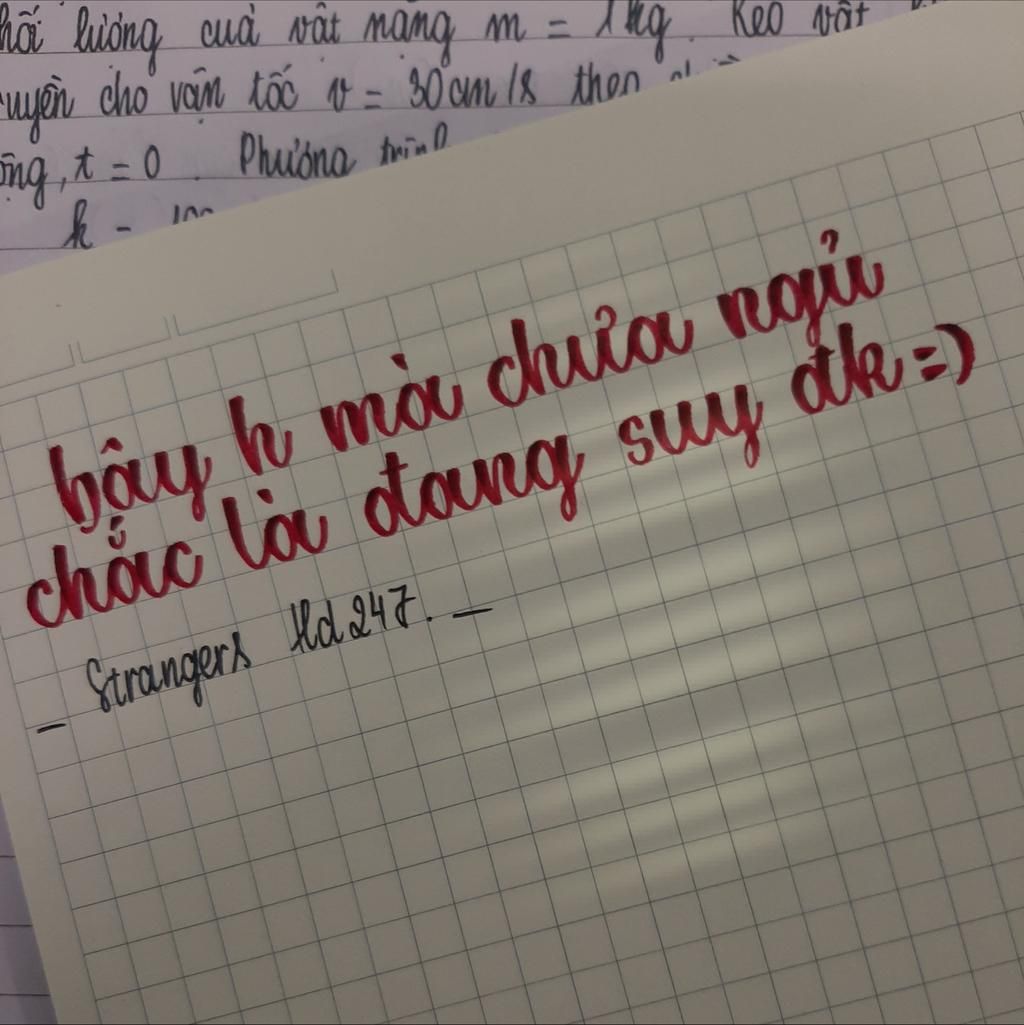 lượng cuả vật nặng m = 1kg. Kéo vật
cho vận tốc v = 30cm/s theo
t = 0. Phương trình
k =
bây h mà chưa ngủ
chắc là đang suy đk =)
- Strangers Hd247. -